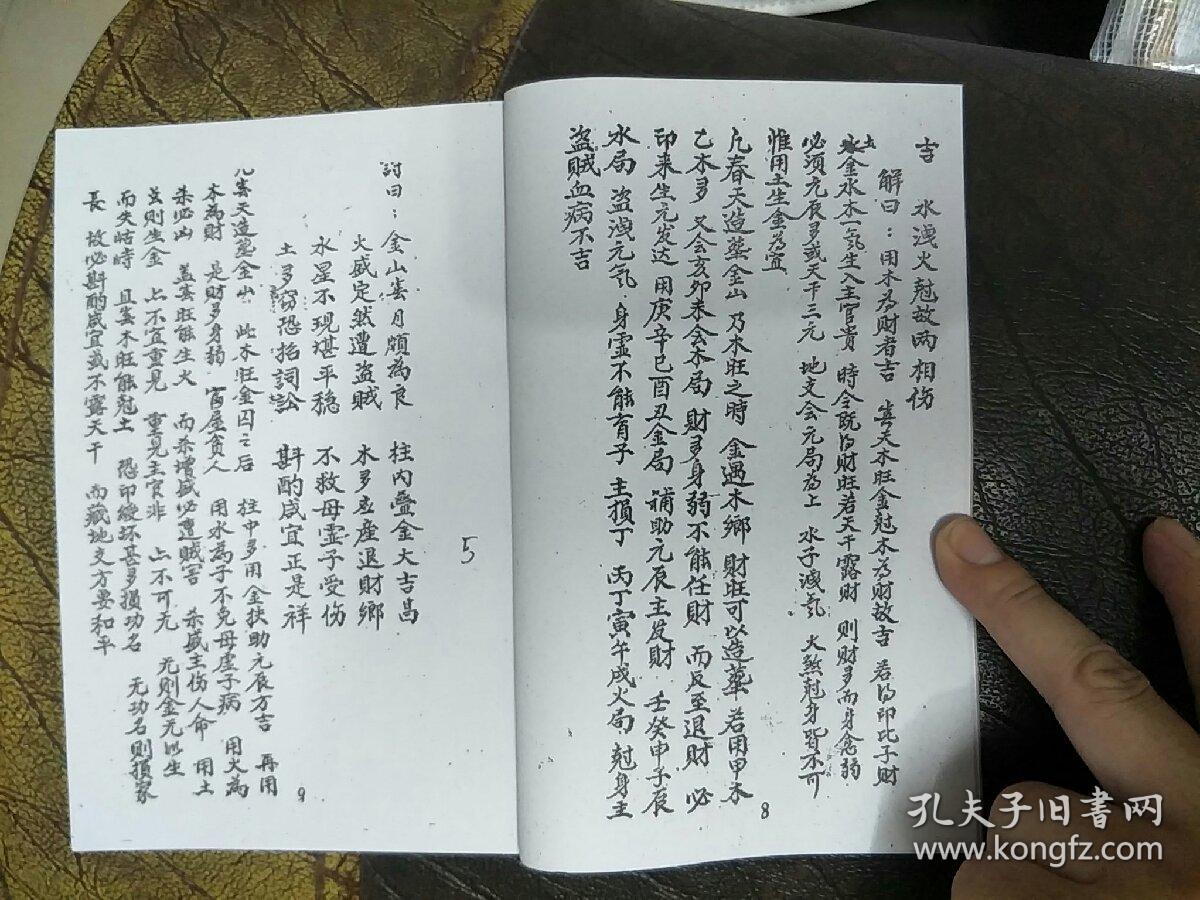 吉　水洩火尅故两相伤
解曰：用木为財者吉　春天木旺金尅木为財故吉　若以印比子財
土金水木一気生入主官贵　時令既以財旺若天干露財　则財多而身愈弱
必须元辰多或天干三元　地支会元局为上　水子洩気　火煞尅身皆不可
惟用土生金为宜
凡春天造葬金山　乃木旺之時　金遇木鄉　財旺可以造葬　若用甲木
乙木多　又会亥卯未会木局　財多身弱不能任財　而反至退財　必
印来生元发达　用庚辛巳酉丑金局　補助元辰主发財　壬癸申子辰
水局　盜洩元気　身虚不能育子　主損丁　丙丁寅午戍火局　尅身主
盜賊血病不吉
8
5
詩曰：金山春月頗为良　柱内叠金大吉昌
火盛定然遭盜賊　木多产退財鄉
水星不現堪平稳　不救母虚子受伤
土多窃恐招詞訟　斟酌咸宜正是祥
凡春天造葬金山　此木旺金囚之后　柱中多用金扶助元辰方吉　再用
木为財　是財多身弱　富屋贫人　用水为子不免母虚子病　用火为
杀必凶　盖春旺能生火　而杀增盛必遭贼害　杀盛主伤人命　用土
则生金　不宜重見　重見主官非　不可无　无则金无以生
而失恃　且春木旺能尅土　恐印綬坏甚多損功名　无功名則損家
長　故必斟酌咸宜或不露天干　而藏地支方要和平
9
孔夫子旧书网
www.kongfz.com